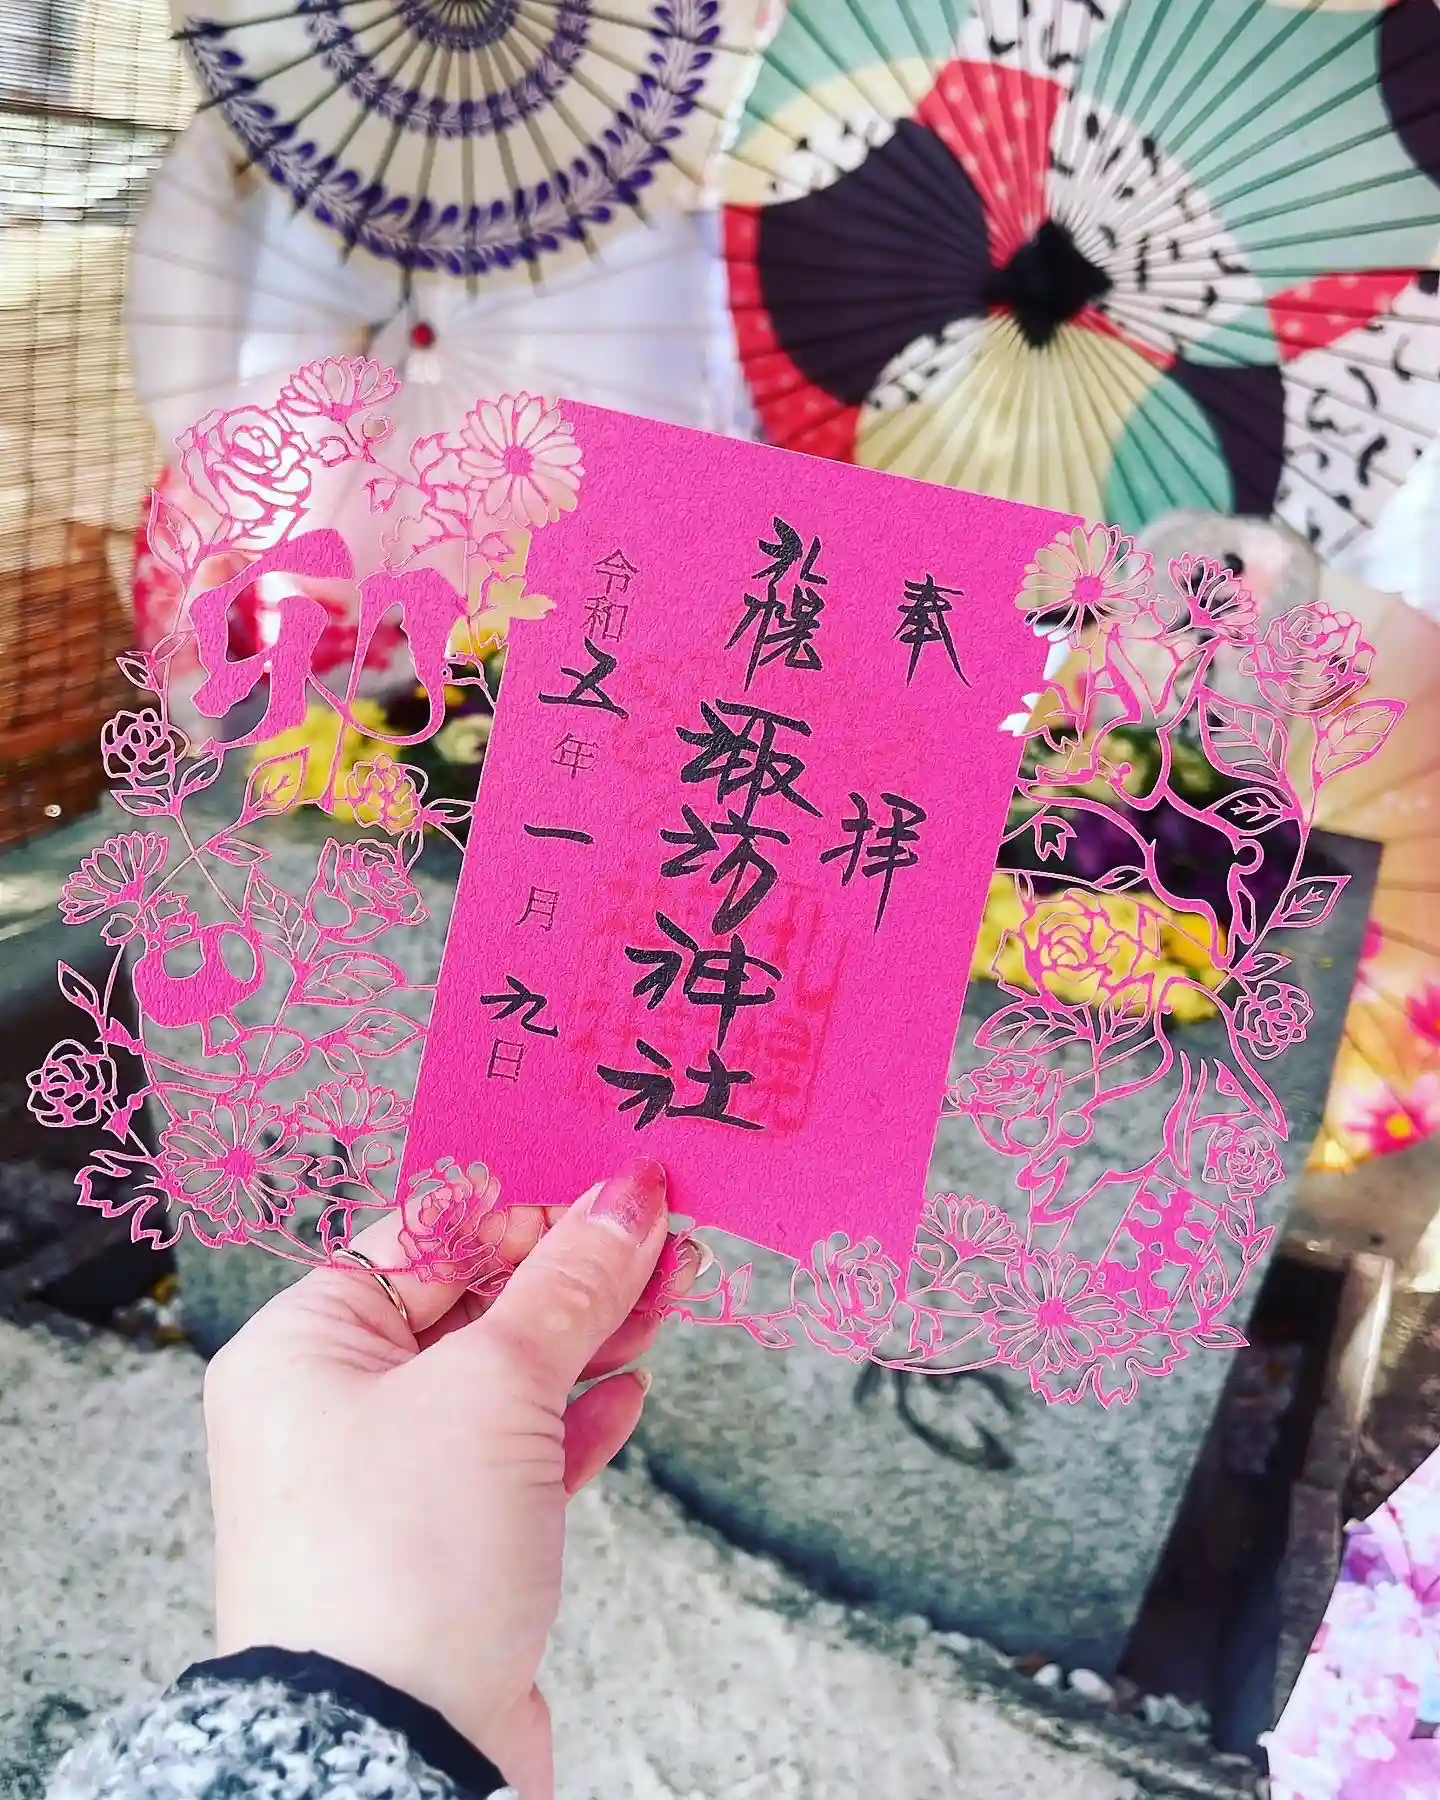 奉拝
札幌諏訪神社
令和五年一月九日
卯